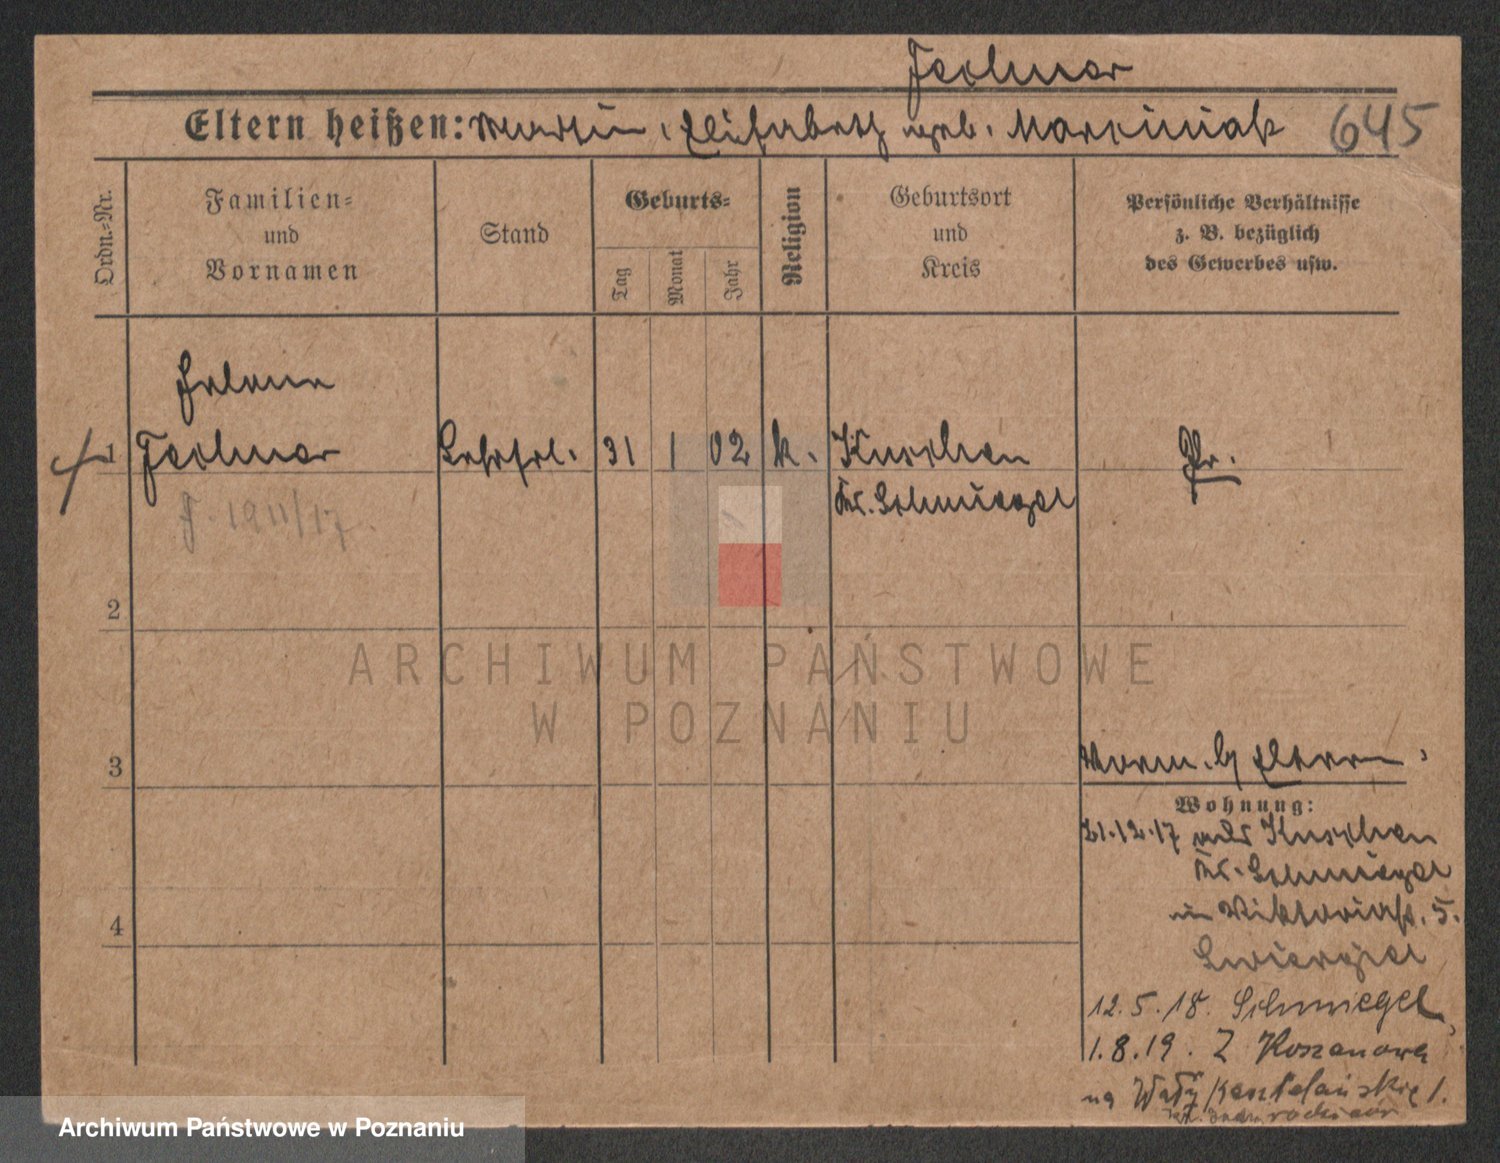 Eltern heißen: Martin, Elisabeth geb. Marciniak 645
Ordn.-Nr.
Familien-
und
Vornamen
Stand
Geburts-
Tag
Monat
Jahr
Religion
Geburtsort
und
Kreis
Persönliche Verhältnisse
z. B. bezüglich
des Gewerbes usw.
Helene
1 31 1 02 k. Kuschen Pr.
Kr. Schmiegel
J. 1911/17
2
3
4
Eltern
Wohnung:
21.12.17 aus Kuschen
Kr. Schmiegel
in Viktoriastr. 5.
12.5.18. Schmiegel
1.8.19. Z Koszanowa
na Wały
ARCHIWUM PAŃSTWOWE
W POZNANIU
Archiwum Państwowe w Poznaniu